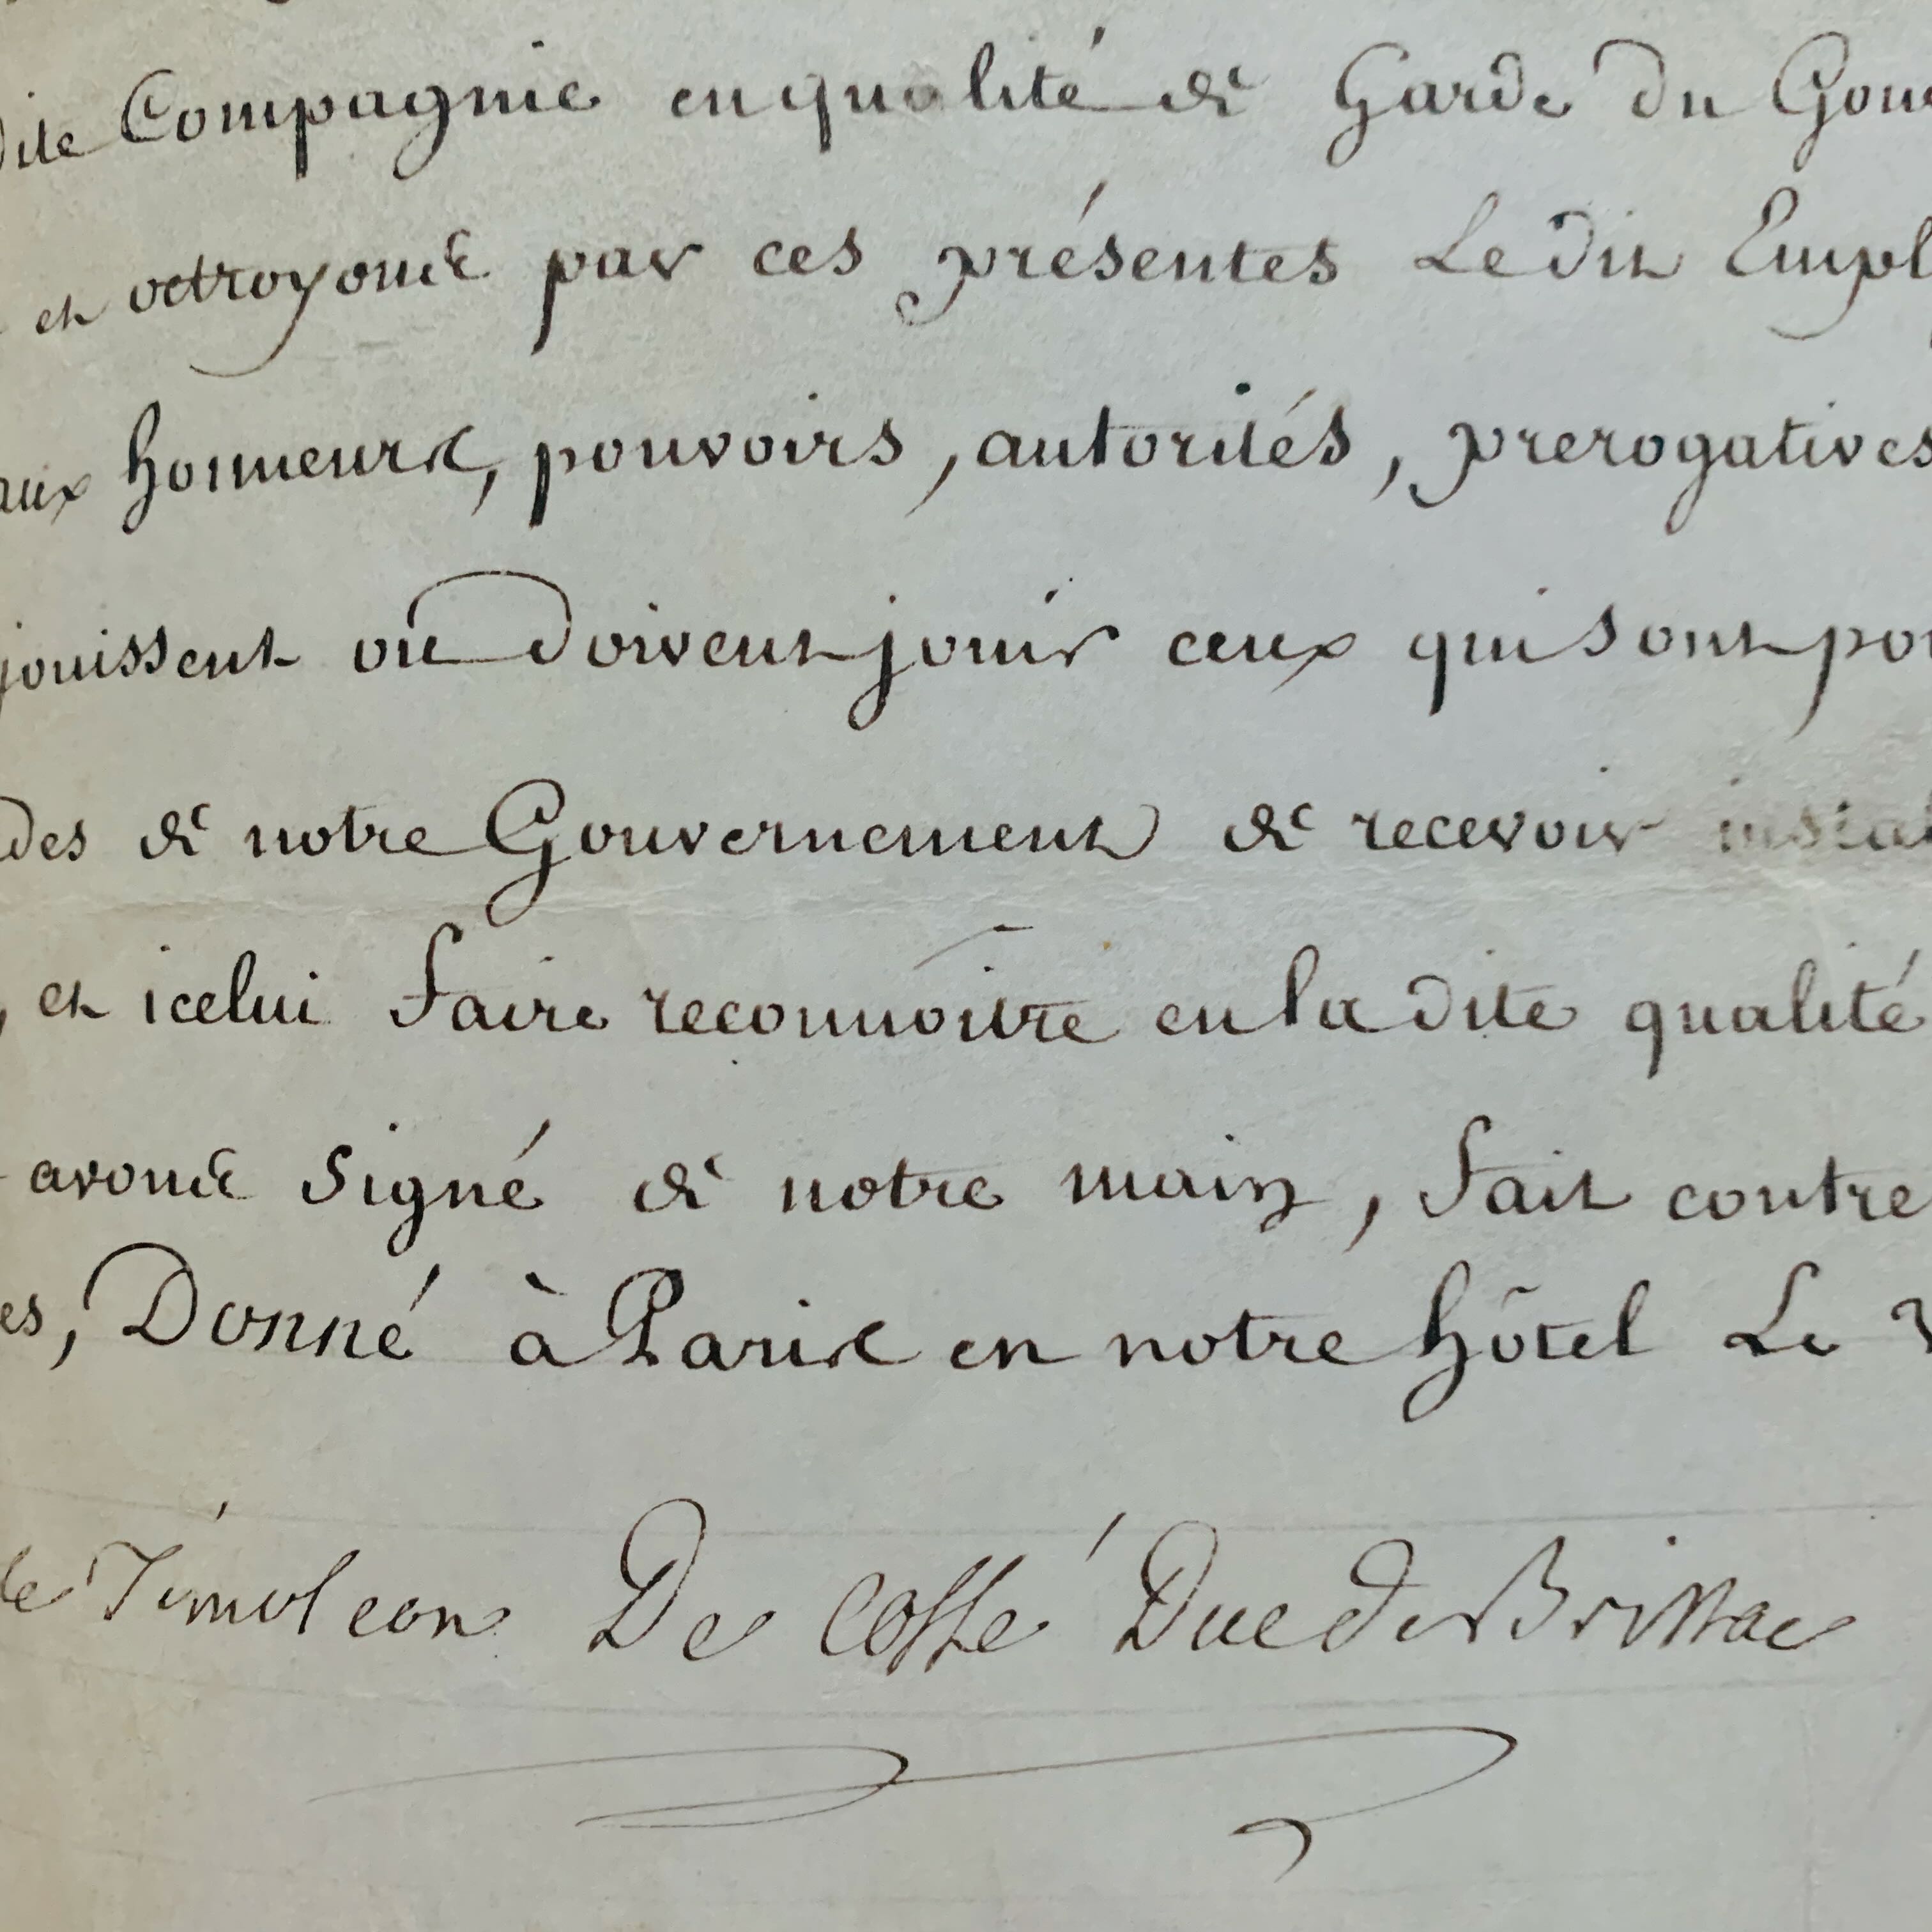 dite Compagnie en qualité de Garde du Gouv
et octroyons par ces présentes Le dit Empl
aux honneurs, pouvoirs, autorités, prerogatives
jouissent ou doivent jouir ceux qui sont pou
des de notre Gouvernement de recevoir instal
, et icelui faire reconnoître en la dite qualité
avons signé de notre main, fait contre
es, Donné à Paris en notre hôtel Le
le Timoleon De Cossé Duc de Brissac